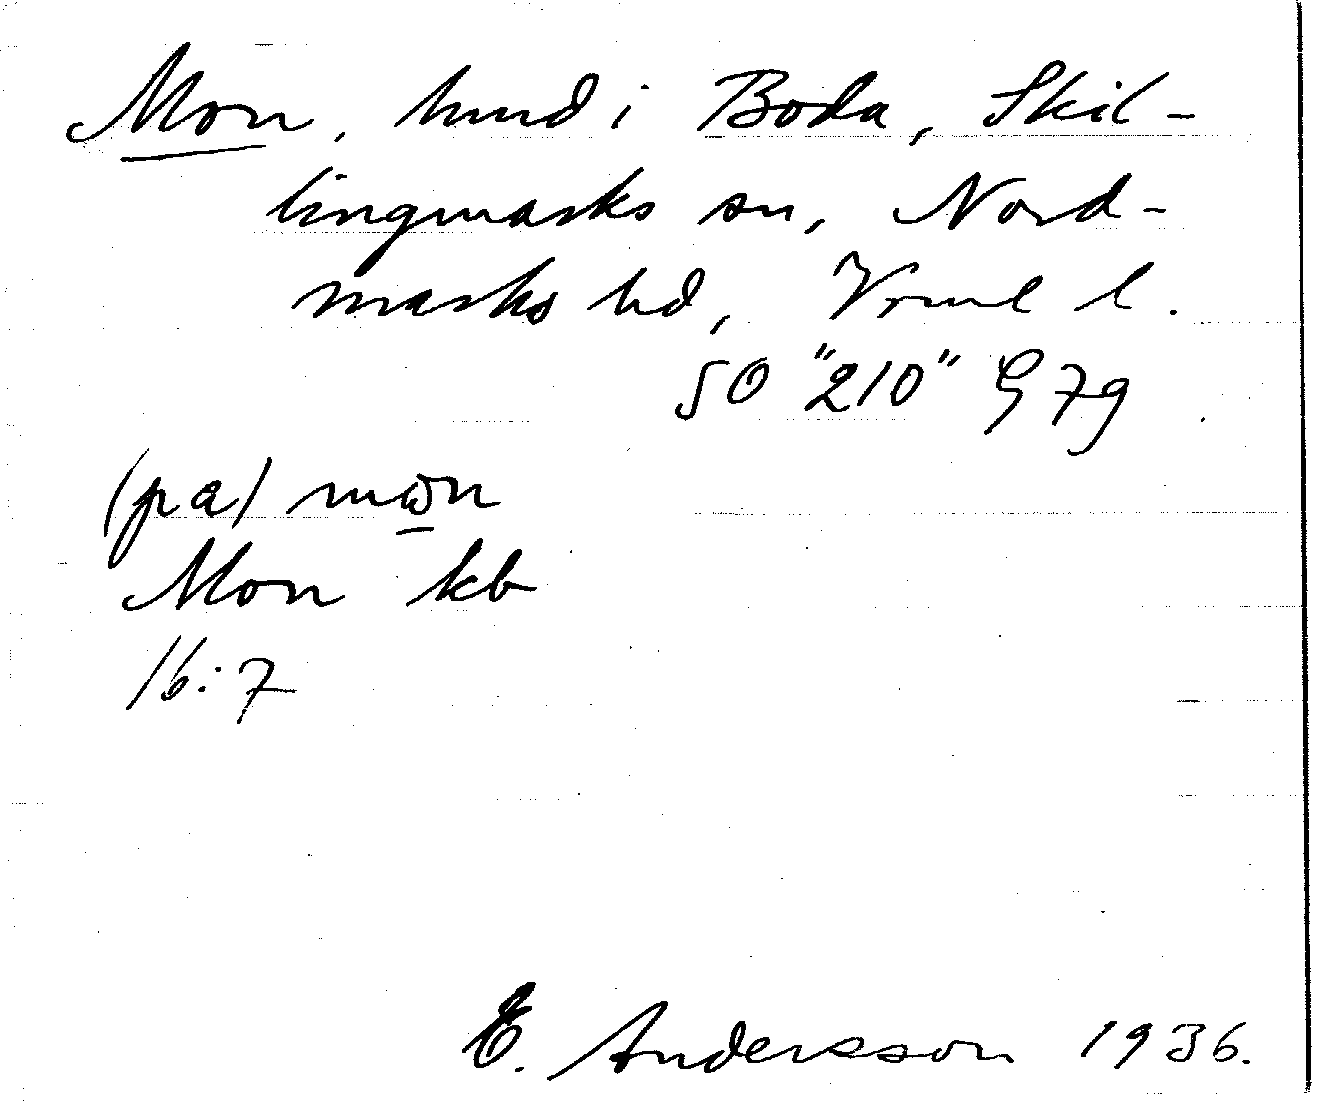 Mon, hmd i Boda, Skil-
lingmarks sn, Nord-
marks hd, Vrml l.
50 "210" G 79
(pa) mɷn
Mon kb
16:7
E. Andersson 1936.